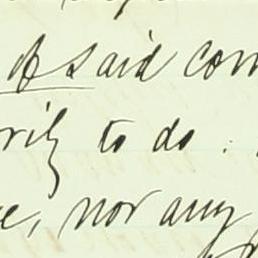 of said com
rily to do.
e, nor any